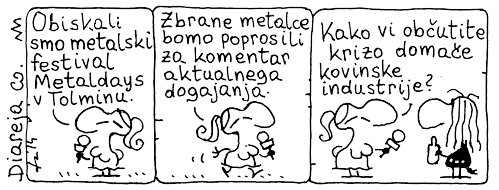 Obiskali
smo metalski
festival
Metaldays
v Tolminu.
Zbrane metalce
bomo poprosili
za komentar
aktualnega
dogajanja.
Kako vi občutite
krizo domače
kovinske
industrije?
Diareja co.